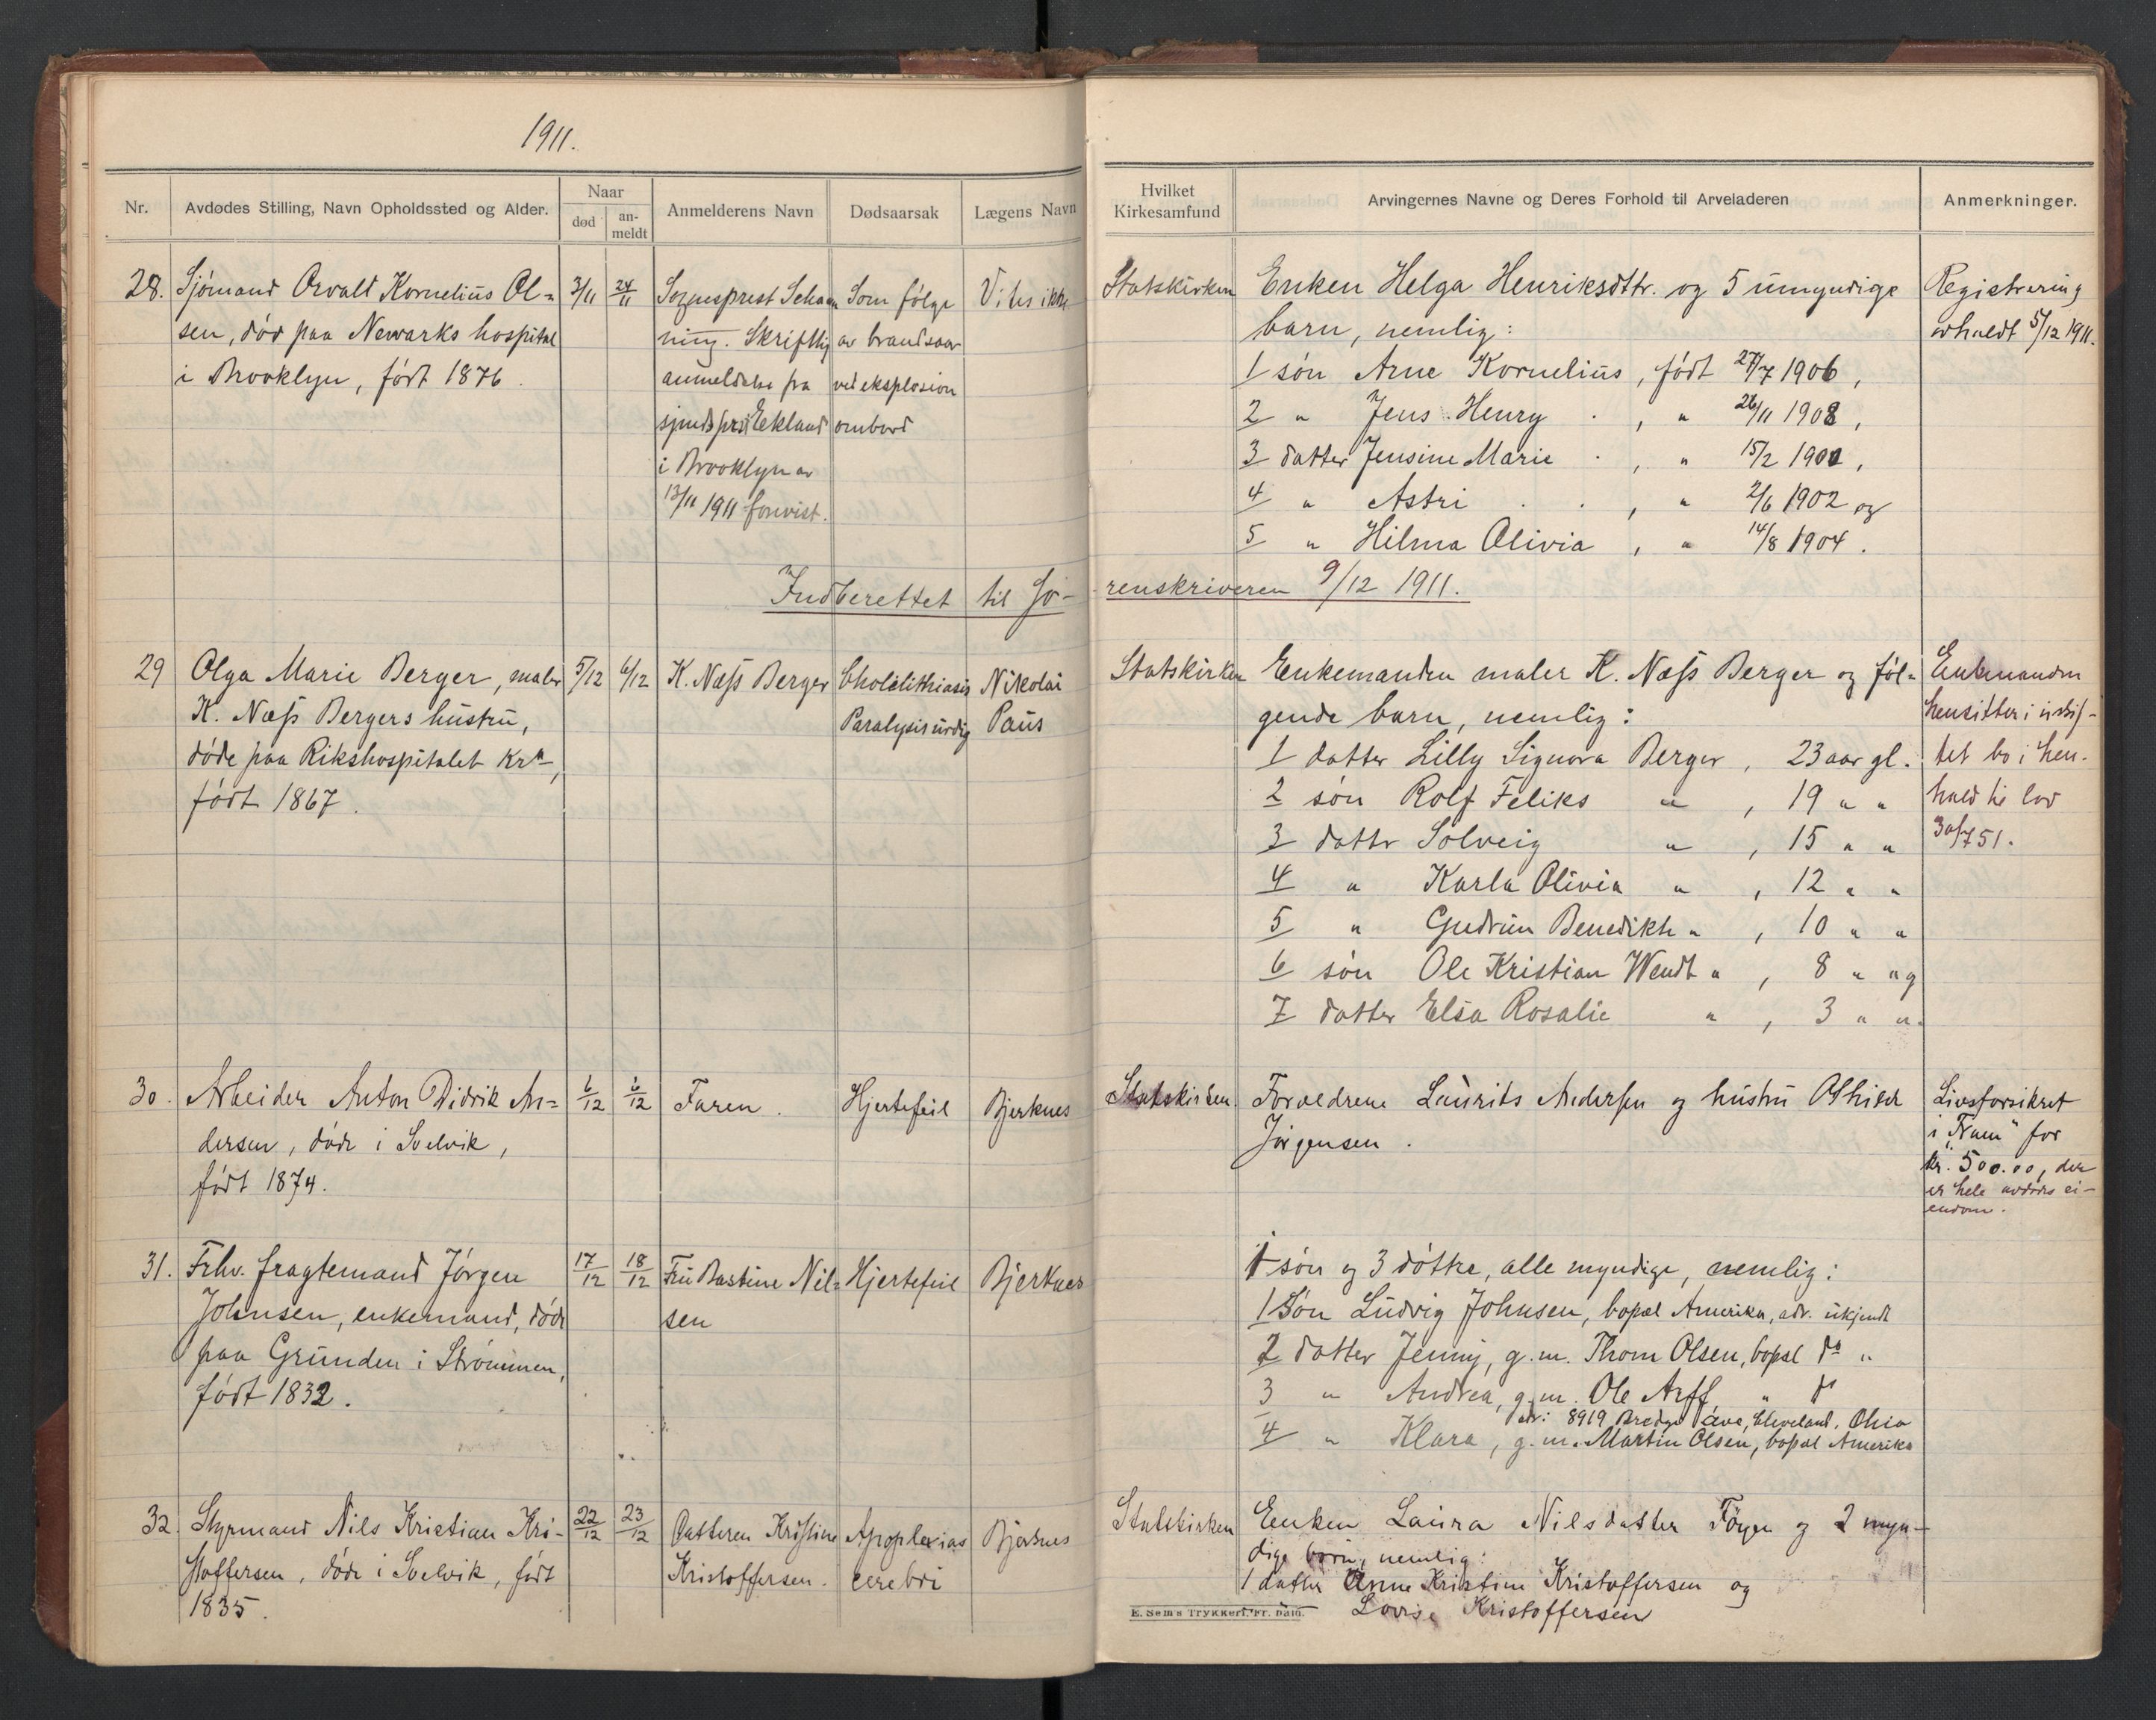 1911.
Nr.
Avdødes Stilling, Navn Opholdssted og Alder.
Naar
død
an-
meldt
Anmelderens Navn
Dødsaarsak
Lægens Navn
28. Sjómand Osvald Kornelius Ol-
sen, dód paa Newarks hospital
i Brooklyn, fódt 1876.
3/11
24/11
Sognesprest
ning. Skriftlig
anmeldelse fra
Ekland
i Brooklyn av
13/11 1911 forevist.
Som fólge
av brandsaar
ved eksplosion
ombord
Vites ikke
Indberettet til So-
29 Olga Marie Berger, maler
K. Næss Bergers hustru,
dóde paa Rikshospitalet Kra,
fódt 1867.
5/12
6/12
K. Næss Berger
Cholelithiasis
Nikolai
Paus
30. Arbeider Anton Didrik An-
dersen, dóde i Svelvik,
fódt 1874.
6/12
6/12
Faren.
Hjertefeil
Bjerknes
31. Frhv. fragtemand Jórgen
Johnsen, enkemand, dóde
paa Grunden i Strómmen,
fódt 1832.
17/12
18/12
Fru Bastine Nil-
sen
Hjertefeil
Bjerknes
32. Styrmand Nils Kristian Kri-
stoffersen, dóde i Svelvik, fódt
1835.
22/12
23/12
Datteren Kristine
Kristoffersen.
Apoplexias
cerebri
Bjerknes
Hvilket
Kirkesamfund
Arvingernes Navne og Deres Forhold til Arveladeren
Anmerkninger.
Statskirken
Enken Helga Henriksdttr. og 5 umyndige
barn, nemlig:
1 són Arne Kornelius, fódt 27/7 1906,
2 " Jens Henry . , " 26/11 1908,
3 datter Jensine Marie . , " 15/2 1900,
4 " Astri . . , " 2/6 1902 og
5 " Hilma Olivia , " 14/8 1904.
Registrering
avholdt 5/12 1911.
renskriveren 9/12 1911.
Statskirken
Enkemanden maler K. Næss Berger og fól-
gende barn, nemlig:
1 datter Lilly Signora Berger, 23 aar gl.
2 són Rolf Feliks " , 19 " "
3 datter Solveig " , 15 " "
4 " Karla Olivia " , 12 " "
5 " Gudrun Benedikte " , 10 " "
6 són Ole Kristian Wendt " , 8 " " og
7 datter Elsa Rosalie " , 3 " ".
Enkemanden
hensitter i uskif-
tet bo i hen-
hold til lov
30/7 51.
Statskirken
Forældrene Laurits Andersen og hustru Othilde
Jórgensen.
Livsforsikret
i for
kr. 500.00, der
er hele avdódes ei-
endom.
1 són og 3 dóttre, alle myndige, nemlig:
1 Són Ludvig Johnsen, bopæl Amerika, adr. ukjendt
2 datter Jenny, g.m. Thom Olsen, bopæl do "
3 " Andrea, g.m. Ole Arff " do
adr: 8919 ave, Cleveland, Ohio
4 " Klara, g.m. Martin Olsen, bopæl Amerika
Statskirken
Enken Laura Nilsdatter og 2 myn-
dige barn, nemlig:
1 datter Anne Kristine Kristoffersen og
Lovise Kristoffersen
E. Sems Trykkeri, Fr. hald.